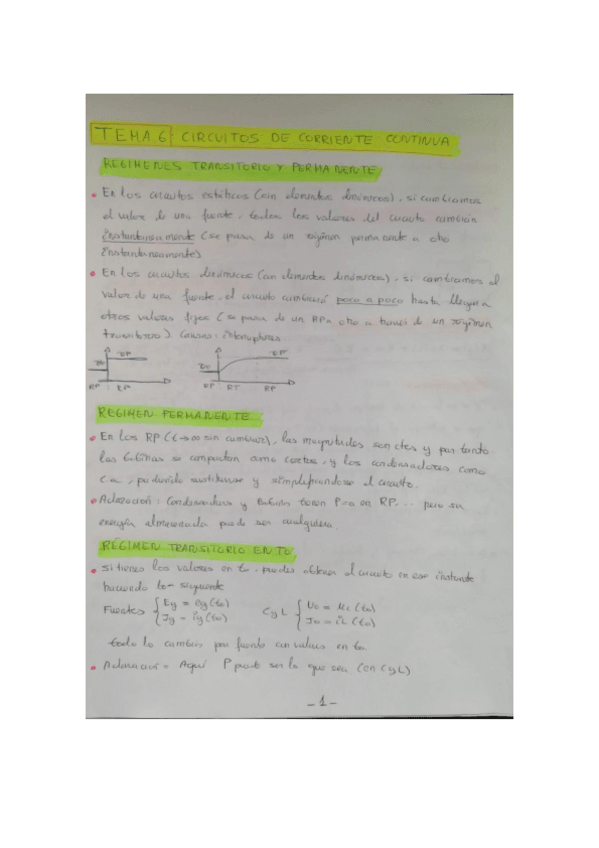 TEMA 6 CIRCUITOS DE CORRIENTE CONTINUA
REGIMENES TRANSITORIO Y PERMANENTE
• En los circuitos estáticos (sin elementos dinámicos), si cambiamos
el valor de una fuente, todos los valores del circuito cambian
instantaneamente (se pasa de un régimen permanente a otro
instantaneamente)
• En los circuitos dinámicos (con elementos dinámicos), si cambiamos el
valor de una fuente, el circuito cambiará poco a poco hasta llegar a
otros valores fijos (se pasa de un RP a otro a traves de un régimen
transitorio). Causas: interruptores
RP RP
RP RT RP
REGIMEN PERMANENTE
• En los RP (t→∞ sin cambiar), las magnitudes son ctes y por tanto
las bobinas se comportan como cortos, y los condensadores como
c.a, pudiendo sustituirse y simplificandose el circuito.
• Aclaración: Condensadores y bobinas tienen P=0 en RP... pero su
energía almacenada puede ser cualquiera.
RÉGIMEN TRANSITORIO EN to
• si tienes los valores en to, puedes obtener el circuito en ese instante
haciendo lo siguiente
Fuentes { Eg = eg(to) C y L { Uo = uc(to)
Jg = ig(to) Io = iL(to)
todo lo cambio por fuente con valores en to
• Aclaración = Aquí P puede ser lo que sea (en C y L)
- 1 -